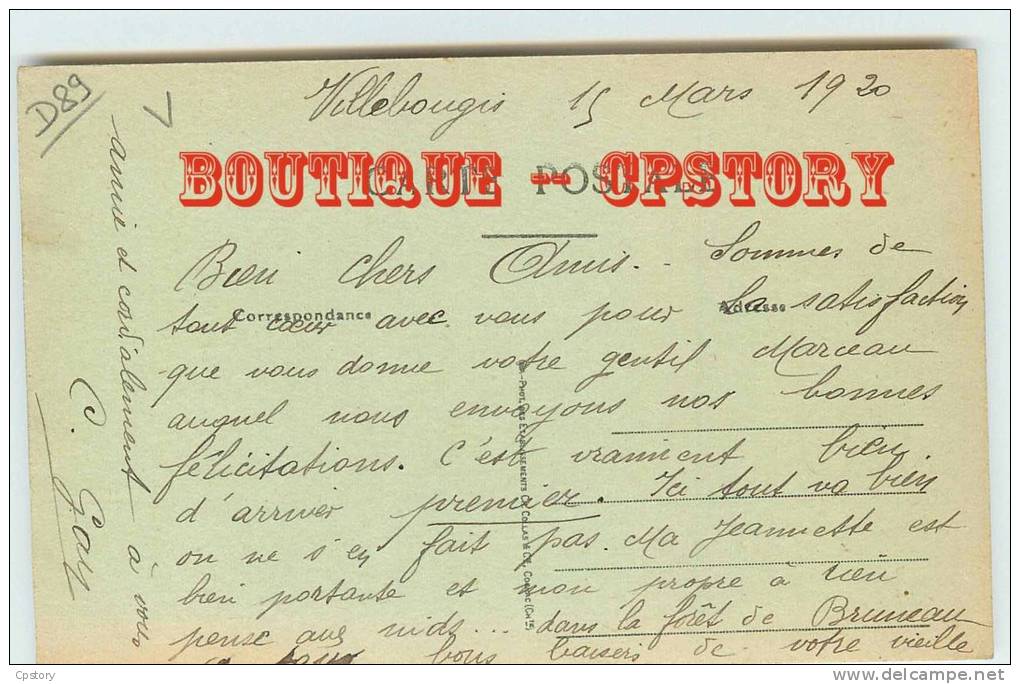 D89
Villebougis 15 Mars 1920
BOUTIQUE - CPSTORY
CARTE POSTALE
Bien chers Amis. Sommes de
Correspondance
Adresse
tout cœur avec vous pour la satisfaction
que vous donne votre gentil Marceau
auquel nous envoyons nos bonnes
félicitations. C'est vraiment bien
d'arriver premier. Ici tout va bien
on ne s'en fait pas. Ma Jeannette est
bien portante et mon propre à rien
pense aux nids... dans la forêt de Bruneau
A tous bons baisers de votre vieille
amie et cordialement à vous
C. Gay
PHOT. DES ETABLISSEMENTS CH. COLLAS & Cie, COGNAC (Chte)
Cpstory
delcampe.net